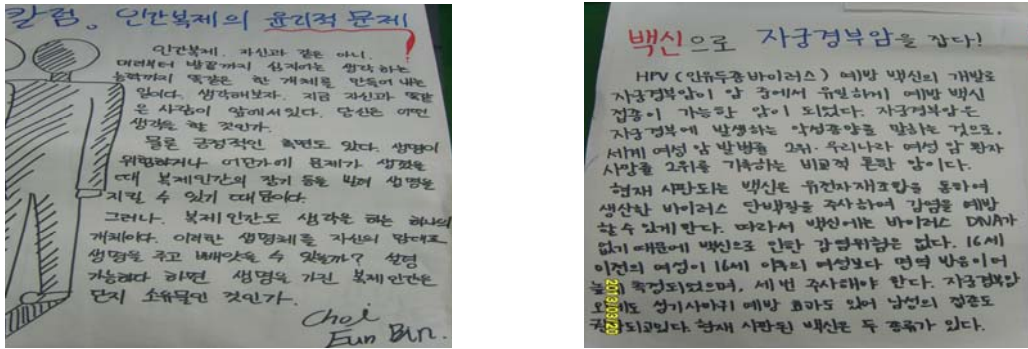 칼럼. 인간복제의 윤리적 문제
인간복제. 자신과 같은 아니.
머리부터 발끝까지 심지어는 생각하는
능력까지 똑같은 한 개체를 만들어 내는
일이다. 생각해보자. 지금 자신과 똑같
은 사람이 앞에 서있다. 당신은 어떤
생각을 할 것인가.
물론 긍정적인 측면도 있다. 생명이
위험하거나 어딘가에 문제가 생겼을
때 복제인간의 장기 등을 빌려 생명을
지킬 수 있기 때문이다.
그러나. 복제인간도 생각을 하는 하나의
개체이다. 이러한 생명체를 자신의 맘대로
생명을 주고 빼앗을 수 있을까? 설령
가능하다 하면 생명을 가진 복제인간은
단지 소유물인 것인가.
Choi
Eun Bin.
백신으로 자궁경부암을 잡다!
HPV (인유두종바이러스) 예방 백신의 개발로
자궁경부암이 암 중에서 유일하게 예방 백신
접종이 가능한 암이 되었다. 자궁경부암은
자궁경부에 발생하는 악성종양을 말하는 것으로,
세계 여성 암 발병률 2위. 우리나라 여성 암 환자
사망률 2위를 기록하는 비교적 흔한 암이다.
현재 시판되는 백신은 유전자재조합을 통하여
생산한 바이러스 단백질을 주사하여 감염을 예방
할 수 있게 한다. 따라서 백신에는 바이러스 DNA가
없기 때문에 백신으로 인한 감염위험은 없다. 16세
이전의 여성이 16세 이후의 여성보다 면역 반응이 더
높게 측정되었으며, 세 번 주사해야 한다. 자궁경부암
외에도 성기사마귀 예방 효과도 있어 남성의 접종도
권장되고있다. 현재 시판된 백신은 두 종류가 있다.
2013/09/20